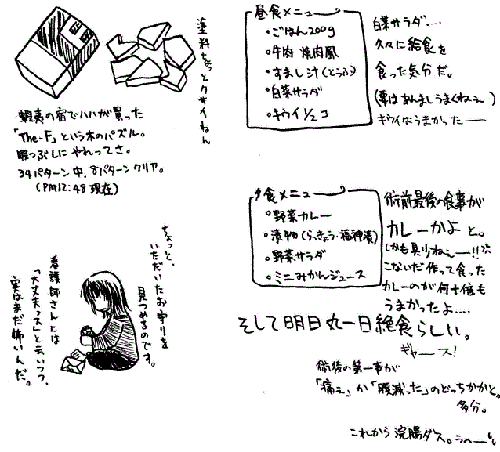 塗料がちっとクサイねん
親類の宿でハハが買った
「The-F」という木のパズル。
暇つぶしにやれってさ。
34パターン中、8パターンクリヤ。
(PM12:48 現在)
昼食メニュー
・ごはん200g
・牛肉 焼肉風
・すまし汁(とうふ)
・白菜サラダ
・キウイ1/2コ
白菜サラダ…
久々に給食を
食った気分だ。
(実はあんましうまくねぇー)
キウイはうまかったー
夕食メニュー
・野菜カレー
・漬物(らっきょう・福神漬)
・野菜サラダ
・ミニみかんジュース
術前最後の食事が
カレーかよ と。
しかも具りねぇー!!
こないだ作って食った
カレーのが何十倍も
うまかったよ…
そして明日丸一日絶食らしい。
ギャース!
術後の第一声が
「痛え」か「腹減った」のどっちかかと。
多分。
これから浣腸ダス。
ちょっと、
いただいたお守りを
見つめるのです。
看護師さんとは
「大丈夫っス」と云いつつ、
実はまだ怖いんだ。